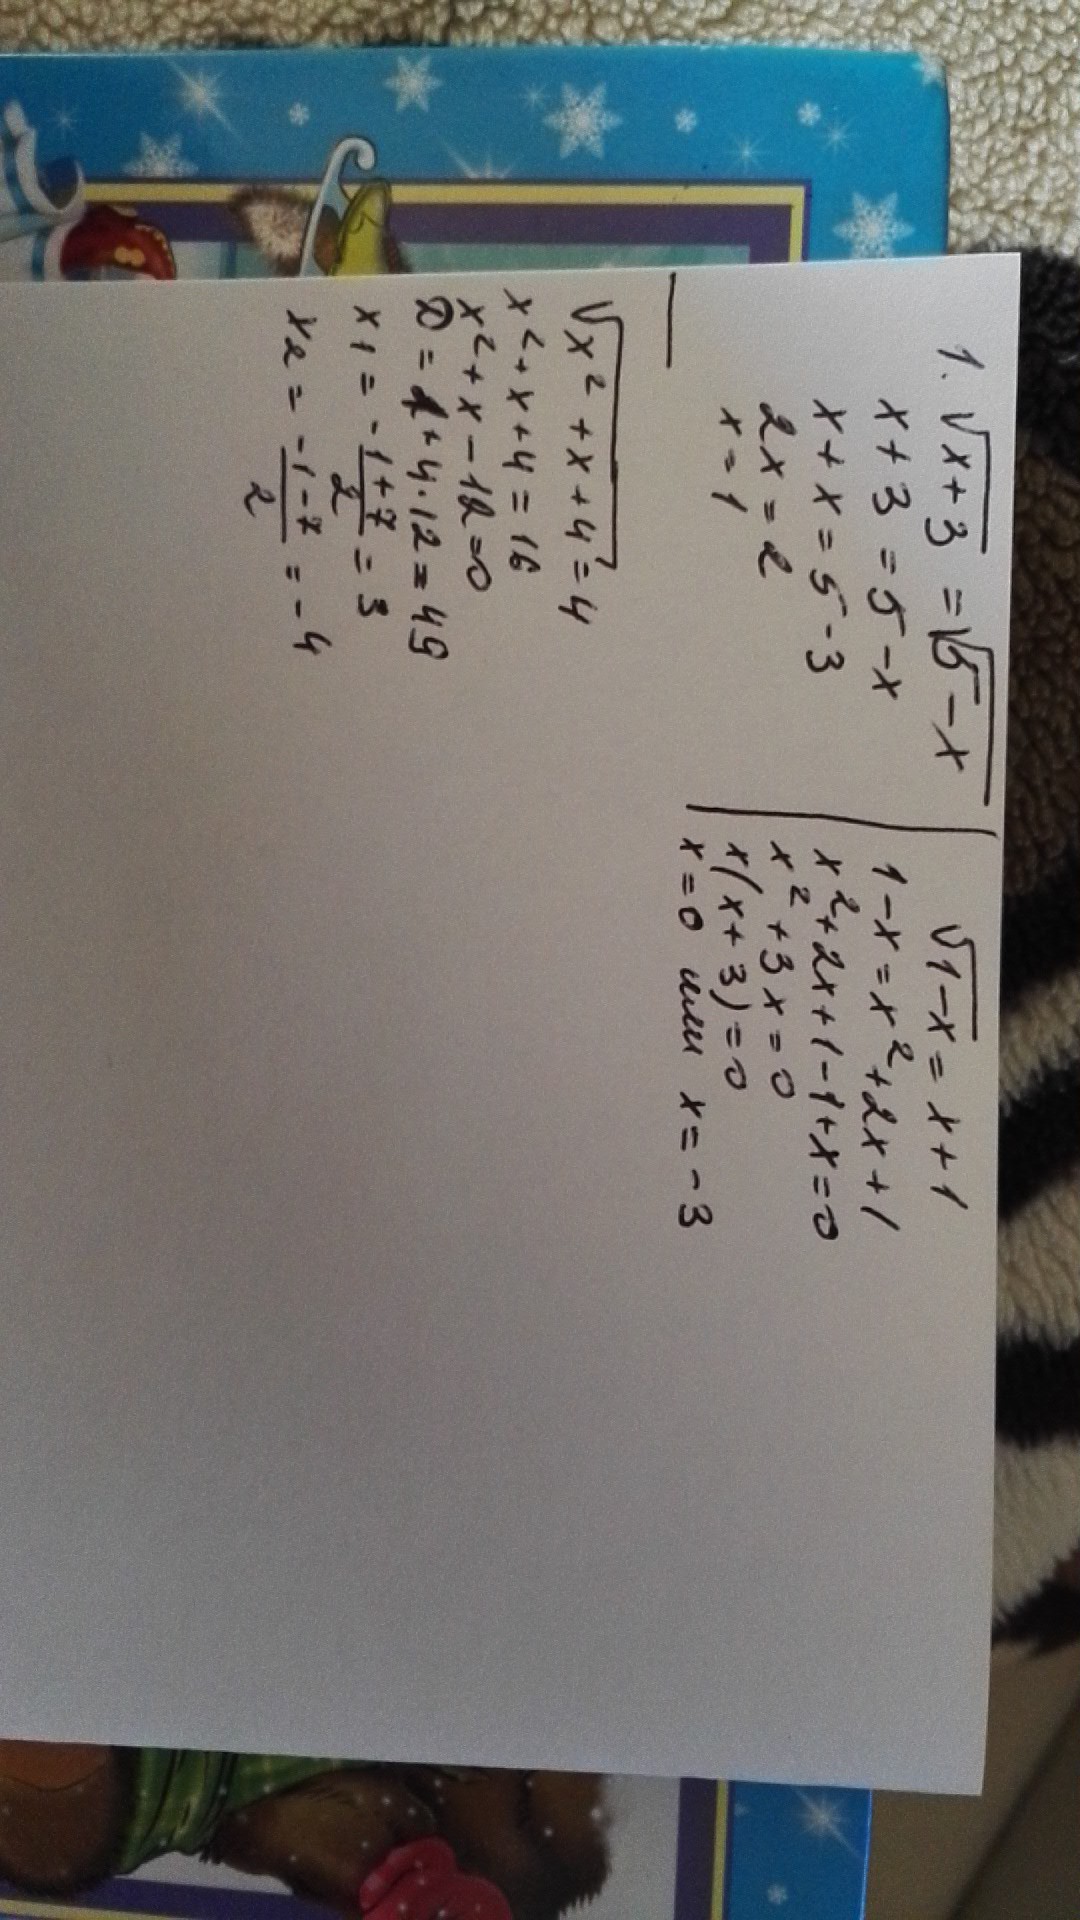 1. √x+3 = √5-x
x+3 = 5-x
x+x = 5-3
2x = 2
x = 1
√1-x = x+1
1-x = x²+2x+1
x²+2x+1-1+x=0
x²+3x=0
x(x+3)=0
x=0 или x=-3
√x²+x+4 = 4
x²+x+4 = 16
x²+x-12=0
D = 1+4·12=49
x1 = -1+7/2 = 3
x2 = -1-7/2 = -4